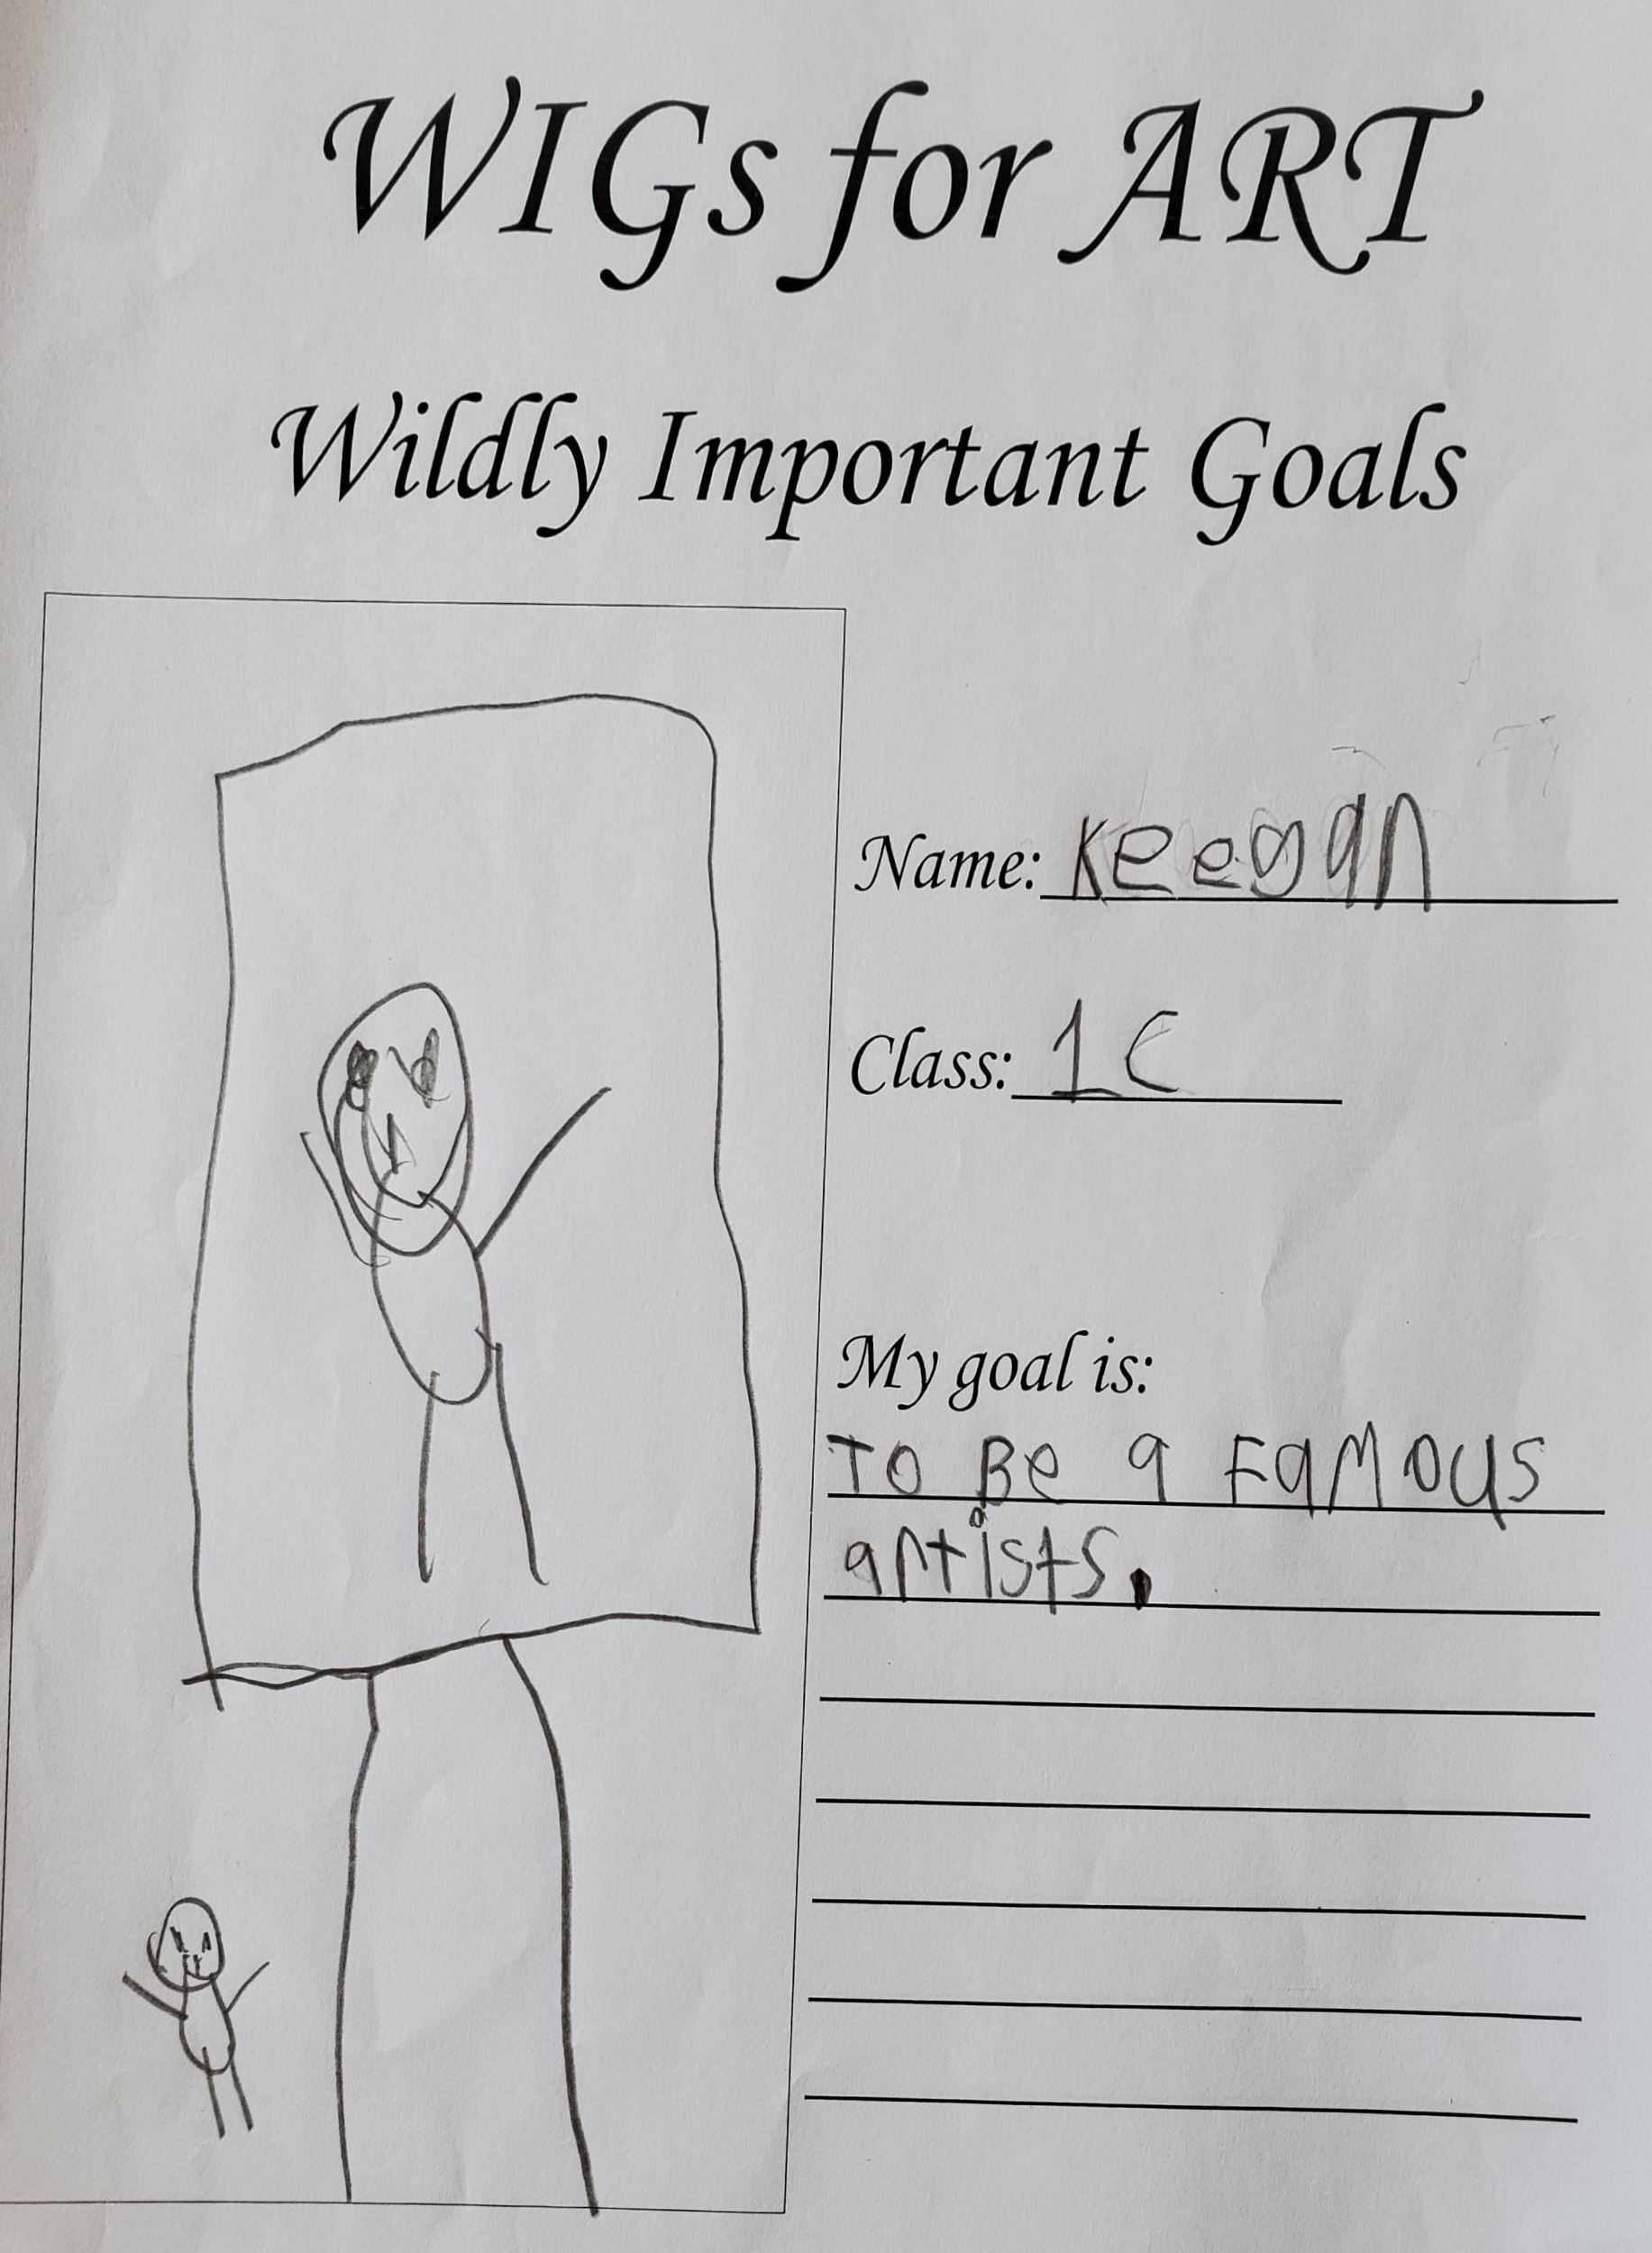 WIGs for ART
Wildly Important Goals
Name: Keegan
Class: 1C
My goal is:
To Be a Famous
artists.